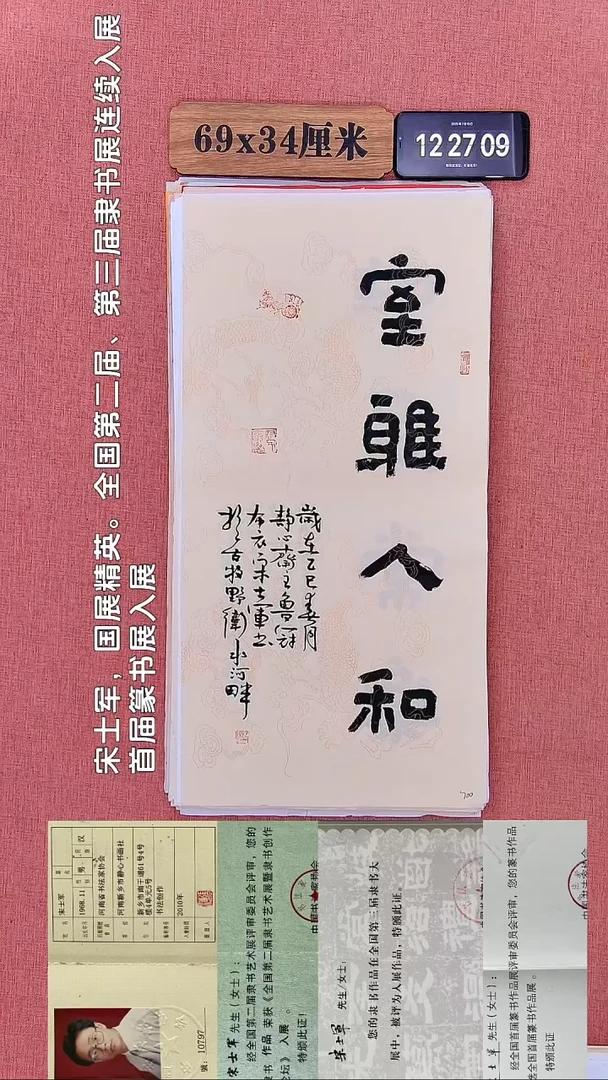 宋士军，国展精英。全国第二届、第三届隶书展连续入展
首届篆书展入展
69x34厘米
12 27 09
室雅人和
歲在乙巳春月
静心齋主鲁冠
布衣宋士軍书
於古牧野衛水河畔
700
宋士军
男
汉
1968.11
河南省书法家协会
河南新乡市静心书画社
新乡市南干道61号4号
楼4单元5号
书法创作
2010年
號：10797
宋士军 先生(女士)：
经全国第二届隶书艺术展评审委员会评审，您的
隶书 作品 荣获《全国第二届隶书艺术展暨隶书创作
论坛》入展 。
特颁此证！
宋士军 先生/女士：
您的隶书作品在全国第三届隶书大
展中，被评为入展作品，特颁此证。
士军 先生(女士)：
经全国首届篆书作品展评审委员会评审，您的篆书作品
全国首届篆书作品展 。
特颁此证